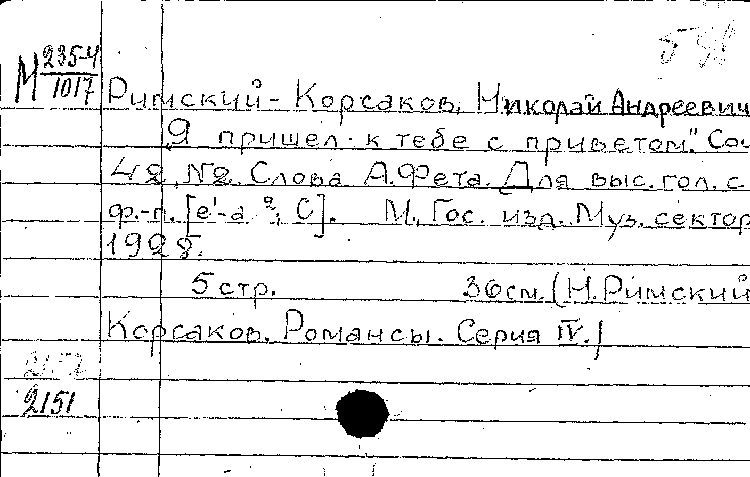 М 235-4
1017
Римский-Корсаков, Николай Андреевич
„Я пришел к тебе с приветом." Соч
42, №2. Слова А.Фета. Для выс. гол. с
ф.-п. [e'-a ², C]. М., Гос. изд. Муз. сектор
1928.
5 стр. 36 см. (Н.Римский
Корсаков. Романсы. Серия IV.)
2152
2151